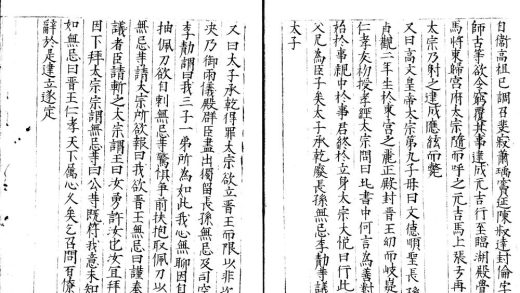 自衛高祖已調召裴寂蕭瑀陳叔達封倫宇
師古等欲令窮覆其事建成元吉行至臨湖殿覺
馬將東歸宮府太宗隨而呼之元吉馬上張弓再
太宗乃射之建成應弦而斃
又曰高文皇帝太宗第九子母曰文德順聖長孫
貞觀二年生於東宮之麗正殿封晉王幼而岐嶷
仁孝友初授孝經太宗問曰此書中何言為善對
始於事親中於事君終於立身太宗大悅曰行此
父兄為臣子矣太子承乾廢長孫無忌李勣等議
太子
又曰太子承乾得罪太宗欲立晉王而限以非次
決乃御兩儀殿群臣盡出獨留長孫無忌及司空
李勣謂曰我三子一弟所為如此我心無聊因自
抽佩刀欲自刺無忌等驚懼爭前扶抱取佩刀以
無忌等請太宗所欲報曰我欲晉王無忌曰謹奉
議者臣請斬之太宗謂王曰女舅許汝也汝宜拜
因下拜太宗謂無忌等曰公等既符我意未知
如無忌曰晉王仁孝天下屬心久矣乞召問有僚
辭於是建立遂定